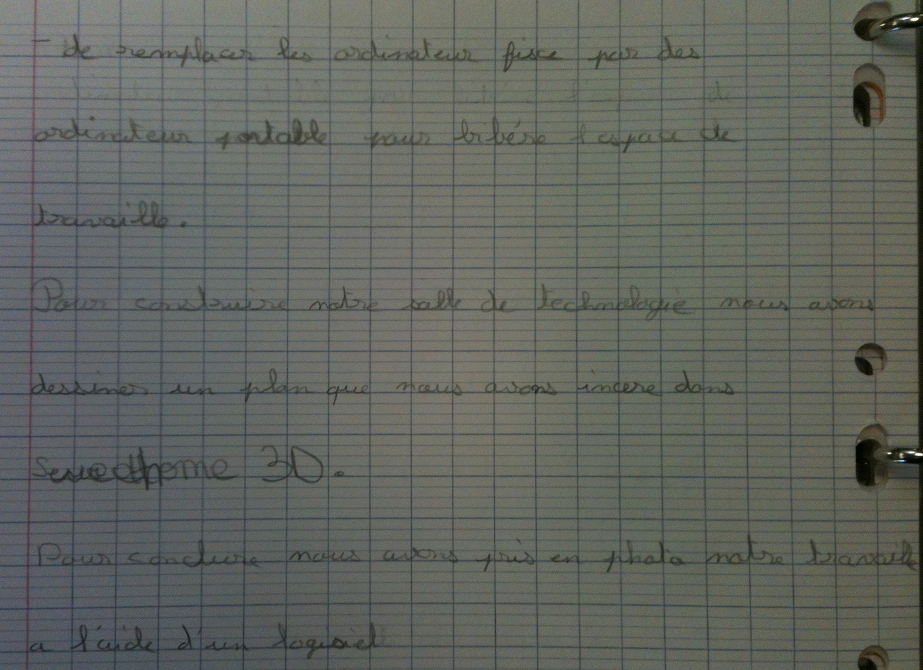 - de remplacer les ordinateur fixe par des
ordinateur portable pour libéré l'espace de
travaille.
Pour construire notre salle de technologie nous avons
dessiner un plan que nous avons incere dans
Sweethome 3D.
Pour conclure nous avons pris en photo notre travaile
a l'aide d'un logiciel